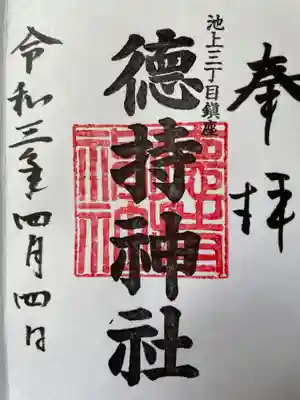 奉拝
池上三丁目鎮座
徳持神社
徳持神社
令和三年四月四日